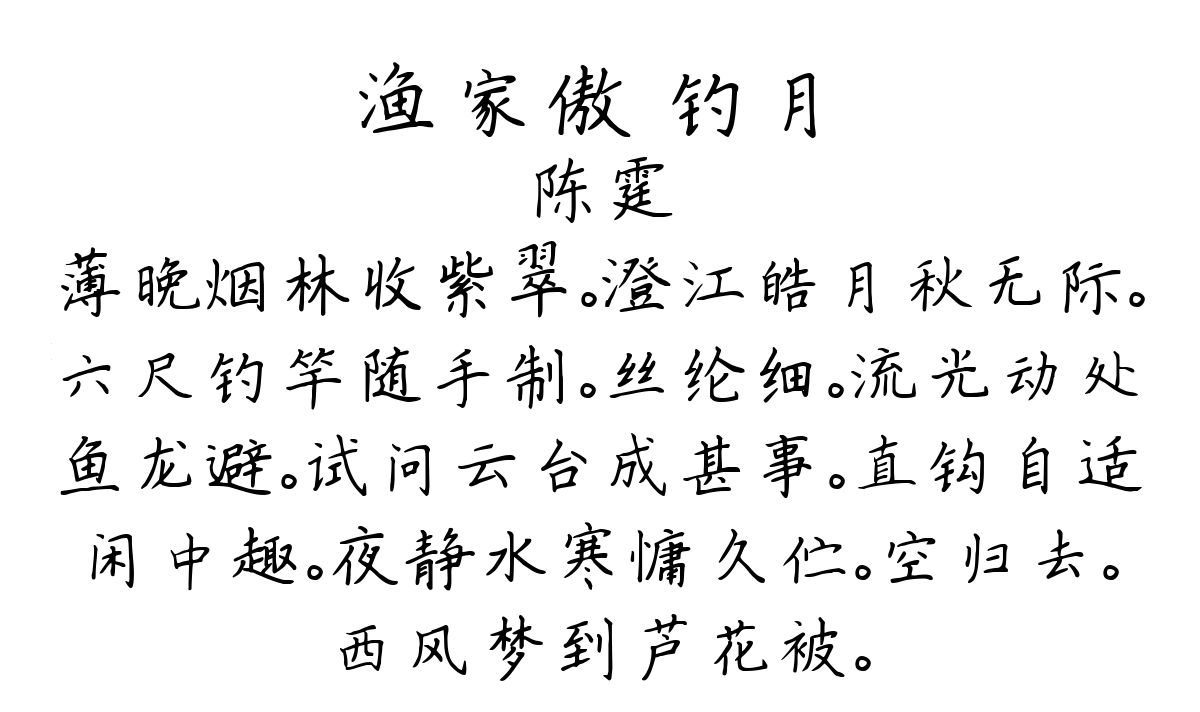 渔家傲 钓月
陈霆
薄晚烟林收紫翠。澄江皓月秋无际。
六尺钓竿随手制。丝纶细。流光动处
鱼龙避。试问云台成甚事。直钩自适
闲中趣。夜静水寒慵久伫。空归去。
西风梦到芦花被。